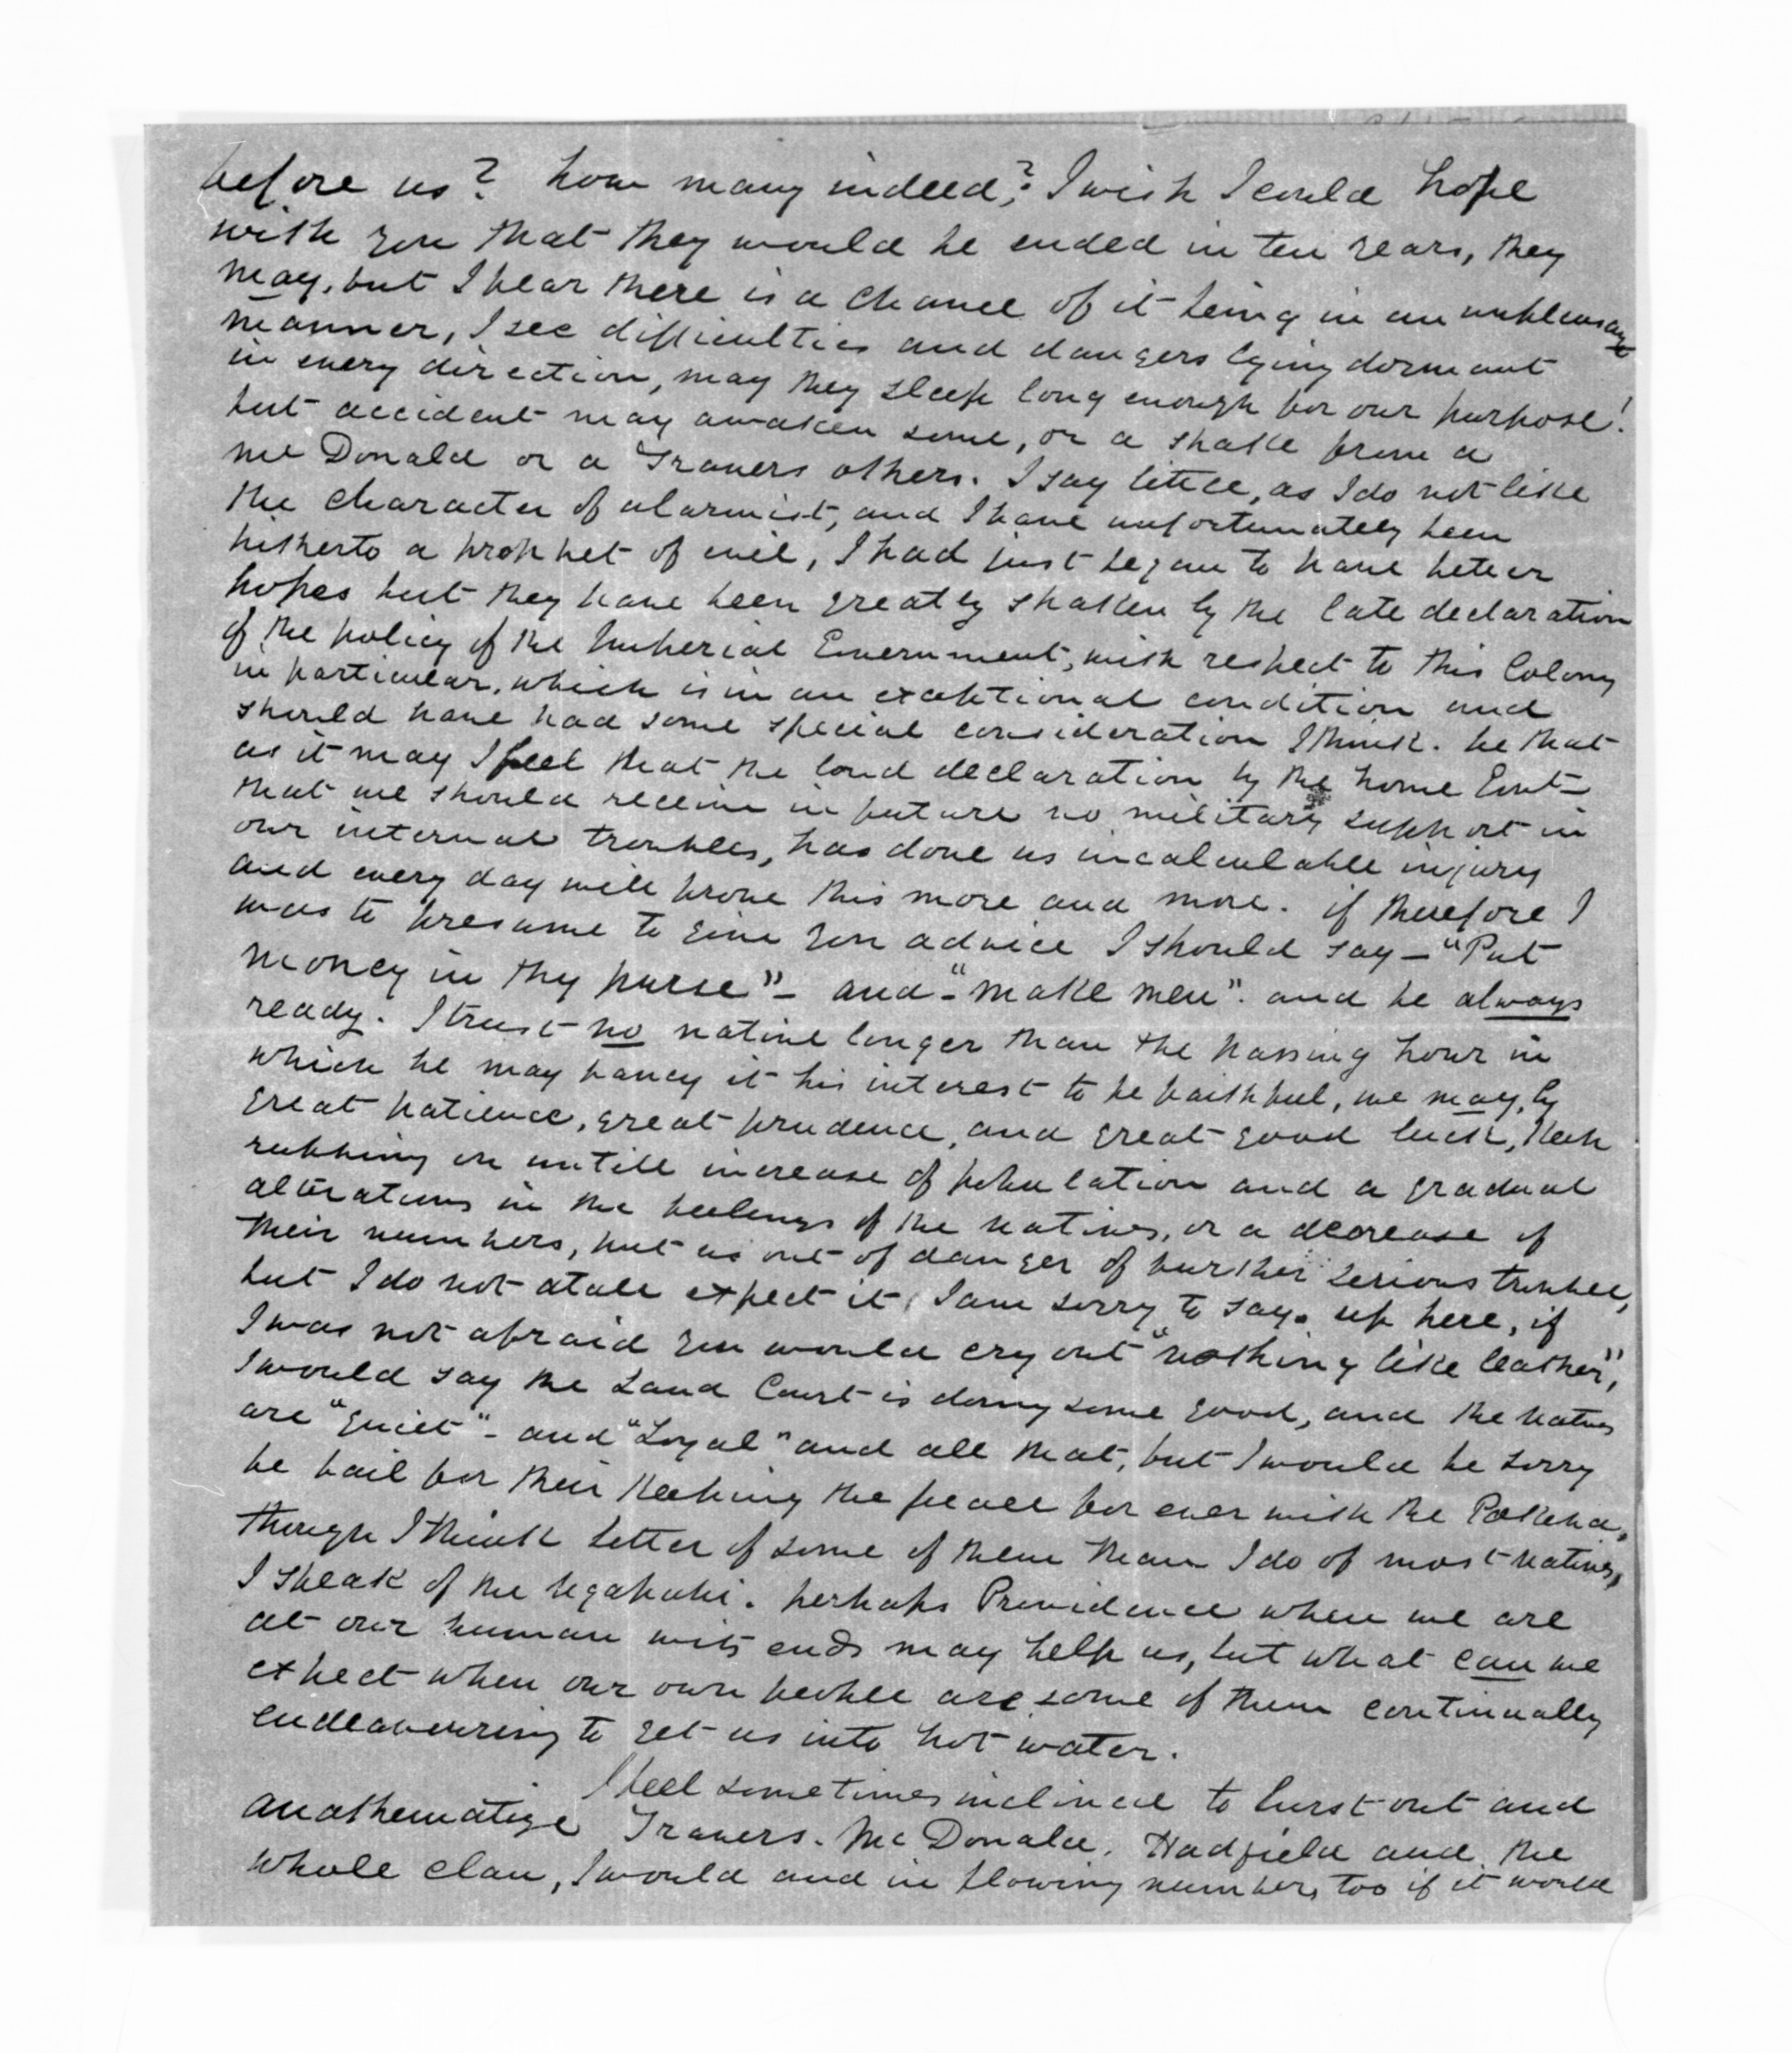 before us? how many indeed? I wish I could hope
with you that they would be ended in ten years, they
may, but I fear there is a chance of it being in an unpleasant
manner, I see difficulties and dangers lying dormant
in every direction, may they sleep long enough for our purpose!
but accident may awaken some, or a shake from a
Mc Donald or a Travers others. I say little, as I do not like
the character of alarmist, and I have unfortunately been
hitherto a prophet of evil, I had just began to have better
hopes but they have been greatly shaken by the late declaration
of the policy of the Imperial Government, with respect to this Colony
in particular, which is in an exceptional condition and
should have had some special consideration I think. be that
as it may I feel that the loud declaration by the home Govt
that we should receive in future no military support in
our internal troubles, has done us incalculable injury
and every day will prove this more and more. if therefore I
was to presume to give you advice I should say — "Put
money in thy purse" - and - "make men". and be always
ready. I trust no native longer than the passing hour in
which he may fancy it his interest to be faithful, we may, by
great patience, great prudence, and great good luck, keep
rubbing on untill increase of population and a gradual
alterations in the feelings of the natives, or a decrease of
their numbers, put us out of danger of further serious trouble,
but I do not atall expect it, I am sorry to say. up here, if
I was not afraid you would cry out "nothing like leather",
I would say the Land Court is doing some good, and the natives
are "quiet" - and "Loyal" and all that, but I would be sorry
be bail for their keeping the peace for ever with the Pakeha,
though I think better of some of them than I do of most natives,
I speak of the Ngapuhi. perhaps Providence when we are
at our human wits ends may help us, but what can we
expect when our own people are some of them continually
endeavouring to get us into hot water.
I feel sometimes inclined to burst out and
anathematize Travers. Mc Donald. Hadfield and the
whole clan, I would and in flowing numbers too if it would